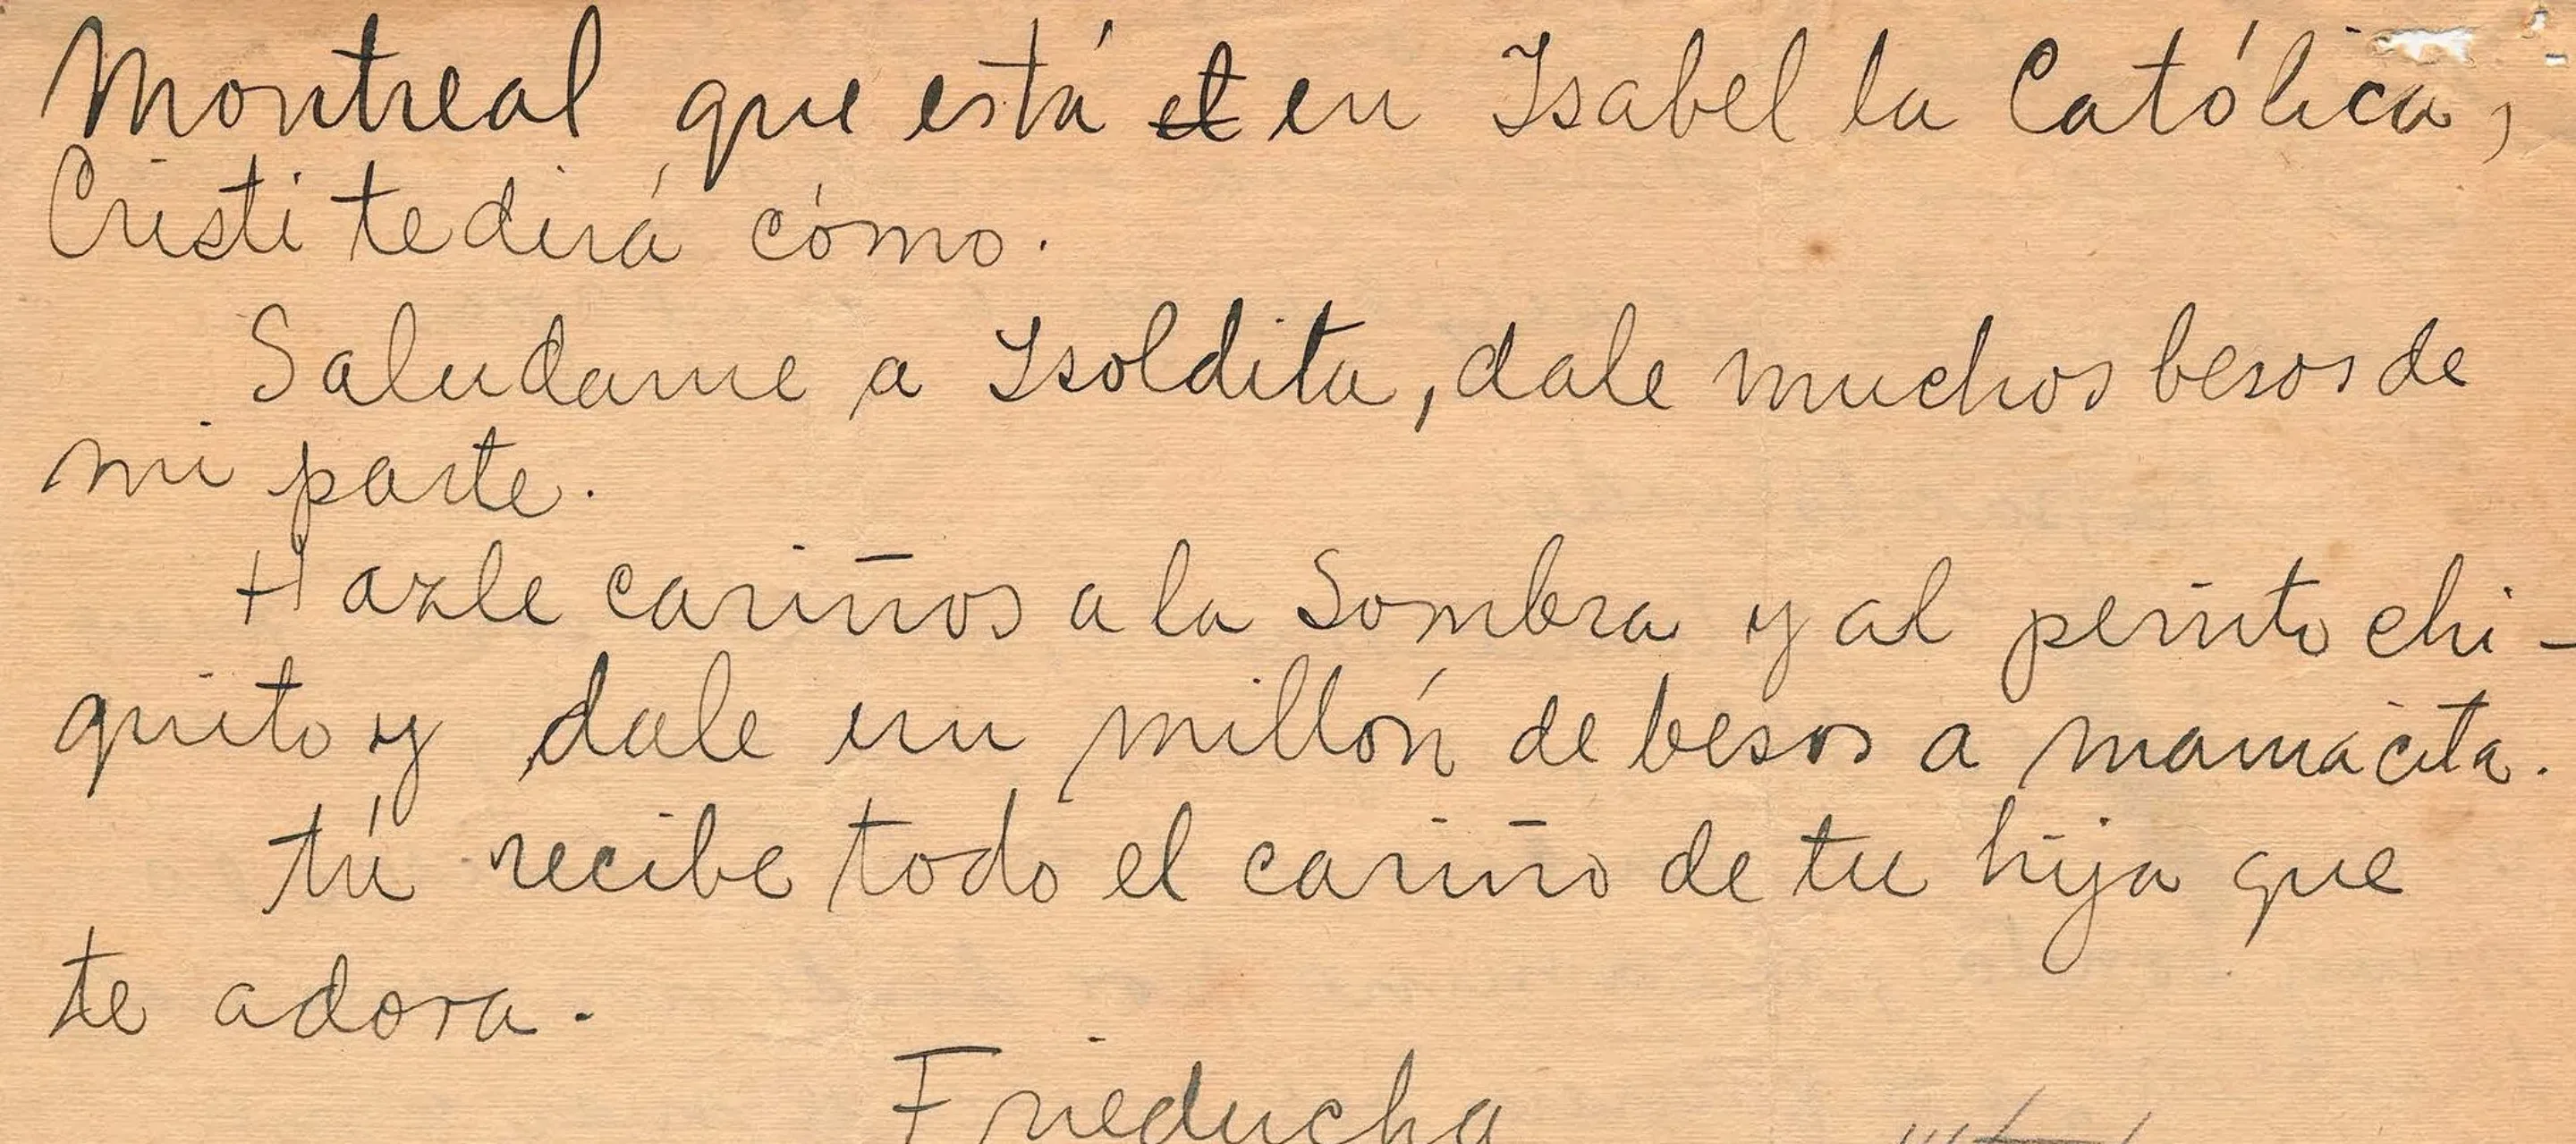 Montreal que está el en Isabel la Católica,
Cristi te dirá cómo.
Saludame a Isoldita, dale muchos besos de
mi parte.
Hazle cariños a la Sombra y al perrito chi-
quito y dale un millón de besos a mamácita.
tú recibe todo el cariño de tu hija que
te adora.
Frieducha